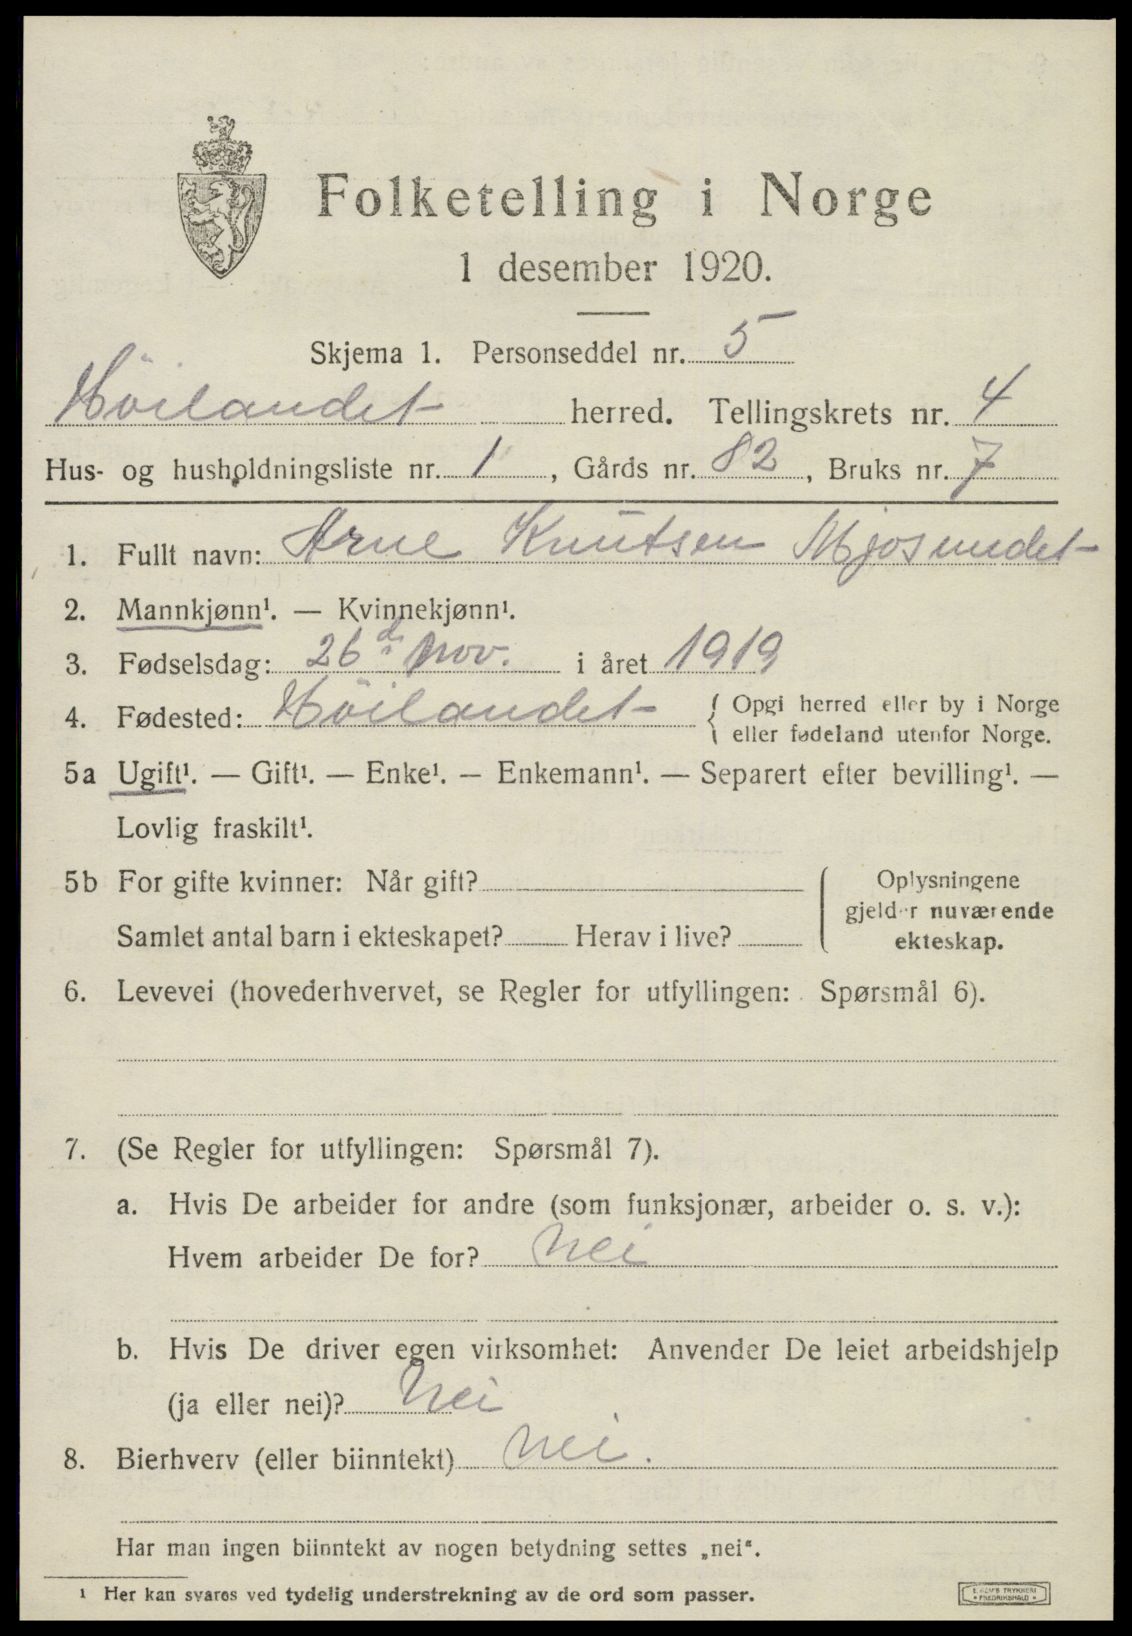 Folketelling i Norge
1 desember 1920.
Skjema 1. Personseddel nr. 5
Höilandet herred. Tellingskrets nr. 4
Hus- og husholdningsliste nr. 1, Gårds nr. 82, Bruks nr. 7
1. Fullt navn: Arne Knutsen Mjosundet
2. Mannkjønn¹. — Kvinnekjønn¹.
3. Fødselsdag: 26de Nov. i året 1919
4. Fødested: Höilandet { Opgi herred eller by i Norge
eller fødeland utenfor Norge.
5a Ugift¹. — Gift¹. — Enke¹. — Enkemann¹. — Separert efter bevilling¹. —
Lovlig fraskilt¹.
5b For gifte kvinner: Når gift?
Samlet antal barn i ekteskapet? Herav i live?
Oplysningene
gjelder nuværende
ekteskap.
6. Levevei (hovederhvervet, se Regler for utfyllingen: Spørsmål 6).
7. (Se Regler for utfyllingen: Spørsmål 7).
a. Hvis De arbeider for andre (som funksjonær, arbeider o. s. v.):
Hvem arbeider De for? Nei
b. Hvis De driver egen virksomhet: Anvender De leiet arbeidshjelp
(ja eller nei)? Nei
8. Bierhverv (eller biinntekt) Nei.
Har man ingen biinntekt av nogen betydning settes „nei“.
¹ Her kan svares ved tydelig understrekning av de ord som passer.